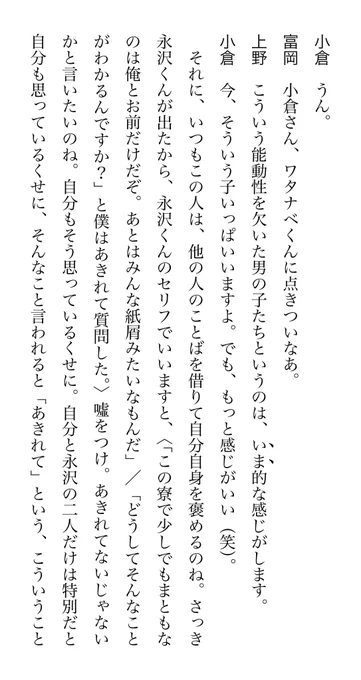 小倉　うん。
富岡　小倉さん、ワタナベくんに点きついなあ。
上野　こういう能動性を欠いた男の子たちというのは、いま的な感じがします。
小倉　今、そういう子いっぱいいますよ。でも、もっと感じがいい（笑）。
　それに、いつもこの人は、他の人のことばを借りて自分自身を褒めるのね。さっき
永沢くんが出たから、永沢くんのセリフでいいますと、〈「この寮で少しでもまともな
のは俺とお前だけだぞ。あとはみんな紙屑みたいなもんだ」／「どうしてそんなこと
がわかるんですか？」と僕はあきれて質問した。〉嘘をつけ。あきれてないじゃない
かと言いたいのね。自分もそう思っているくせに。自分と永沢の二人だけは特別だと
自分も思っているくせに、そんなこと言われると「あきれて」という、こういうこと